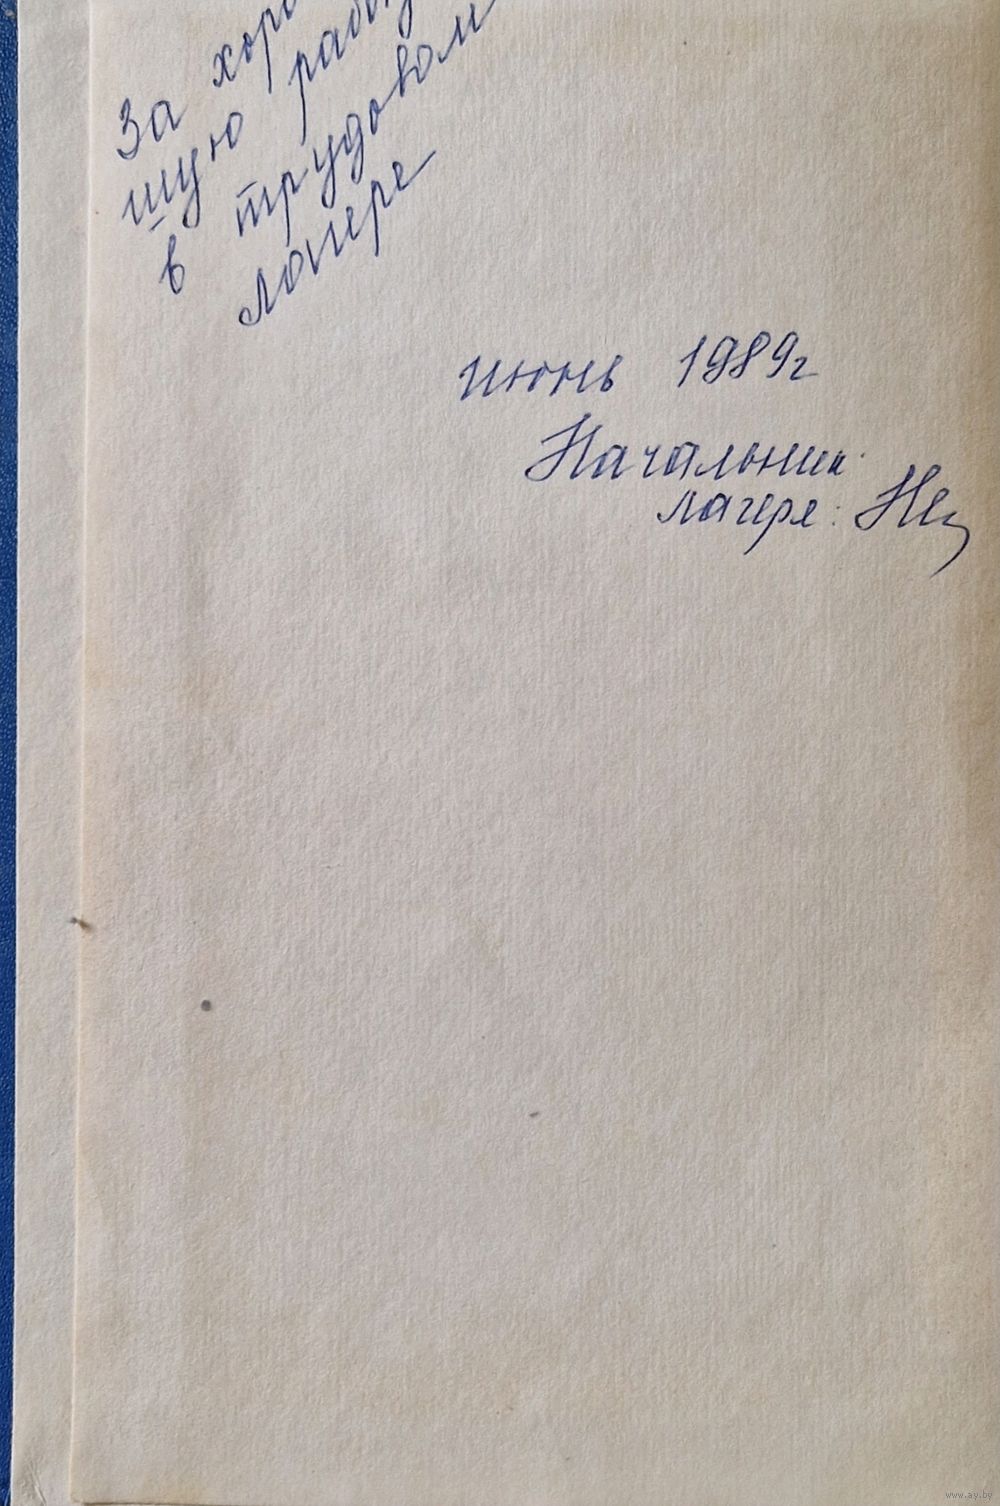 За хоро
шую работ
в трудовом
лагере
июнь 1989г
Начальник
лагеря:
www.ay.by